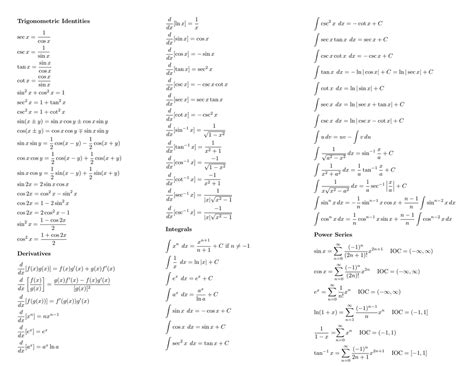 Trigonometric Identities
sec x = 1/cos x
csc x = 1/sin x
tan x = sin x/cos x
cot x = cos x/sin x
sin² x + cos² x = 1
sec² x = 1 + tan² x
csc² x = 1 + cot² x
sin(x ± y) = sin x cos y ± cos x sin y
cos(x ± y) = cos x cos y ∓ sin x sin y
sin x sin y = 1/2 cos(x − y) − 1/2 cos(x + y)
cos x cos y = 1/2 cos(x − y) + 1/2 cos(x + y)
sin x cos y = 1/2 sin(x − y) + 1/2 sin(x + y)
sin 2x = 2 sin x cos x
cos 2x = cos² x − sin² x
cos 2x = 1 − 2 sin² x
cos 2x = 2 cos² x − 1
sin² x = (1 − cos 2x)/2
cos² x = (1 + cos 2x)/2
Derivatives
d/dx [f(x)g(x)] = f(x)g′(x) + g(x)f′(x)
d/dx [f(x)/g(x)] = (g(x)f′(x) − f(x)g′(x))/[g(x)]²
d/dx [f(g(x))] = f′(g(x))g′(x)
d/dx [xⁿ] = nxⁿ⁻¹
d/dx [eˣ] = eˣ
d/dx [aˣ] = aˣ ln a
d/dx [ln x] = 1/x
d/dx [sin x] = cos x
d/dx [cos x] = − sin x
d/dx [tan x] = sec² x
d/dx [csc x] = − csc x cot x
d/dx [sec x] = sec x tan x
d/dx [cot x] = − csc² x
d/dx [sin⁻¹ x] = 1/√(1 − x²)
d/dx [tan⁻¹ x] = 1/(x² + 1)
d/dx [cos⁻¹ x] = −1/√(1 − x²)
d/dx [cot⁻¹ x] = −1/(x² + 1)
d/dx [sec⁻¹ x] = 1/(|x|√(x² − 1))
d/dx [csc⁻¹ x] = −1/(|x|√(x² − 1))
Integrals
∫ xⁿ dx = xⁿ⁺¹/(n + 1) + C if n ≠ −1
∫ 1/x dx = ln |x| + C
∫ eˣ dx = eˣ + C
∫ aˣ dx = aˣ/ln a + C
∫ sin x dx = − cos x + C
∫ cos x dx = sin x + C
∫ sec² x dx = tan x + C
∫ csc² x dx = − cot x + C
∫ sec x tan x dx = sec x + C
∫ csc x cot x dx = − csc x + C
∫ tan x dx = − ln | cos x| + C = ln | sec x| + C
∫ cot x dx = ln | sin x| + C
∫ sec x dx = ln | sec x + tan x| + C
∫ csc x dx = ln | csc x − cot x| + C
∫ u dv = uv − ∫ v du
∫ 1/√(a² − x²) dx = sin⁻¹ x/a + C
∫ 1/(x² + a²) dx = 1/a tan⁻¹ x/a + C
∫ 1/(x√(x² − a²)) dx = 1/a sec⁻¹ |x/a| + C
∫ sinⁿ x dx = −1/n sinⁿ⁻¹ x cos x + (n − 1)/n ∫ sinⁿ⁻² x dx
∫ cosⁿ x dx = 1/n cosⁿ⁻¹ x sin x + (n − 1)/n ∫ cosⁿ⁻² x dx
Power Series
sin x = ∑_{n=0}^∞ (−1)ⁿ/(2n + 1)! x²ⁿ⁺¹ IOC = (−∞, ∞)
cos x = ∑_{n=0}^∞ (−1)ⁿ/(2n)! x²ⁿ IOC = (−∞, ∞)
eˣ = ∑_{n=0}^∞ 1/n! xⁿ IOC = (−∞, ∞)
ln(1 + x) = ∑_{n=1}^∞ (−1)ⁿ⁻¹/n xⁿ IOC = (−1, 1]
1/(1 − x) = ∑_{n=0}^∞ xⁿ IOC = (−1, 1)
tan⁻¹ x = ∑_{n=0}^∞ (−1)ⁿ/(2n + 1) x²ⁿ⁺¹ IOC = [−1, 1]